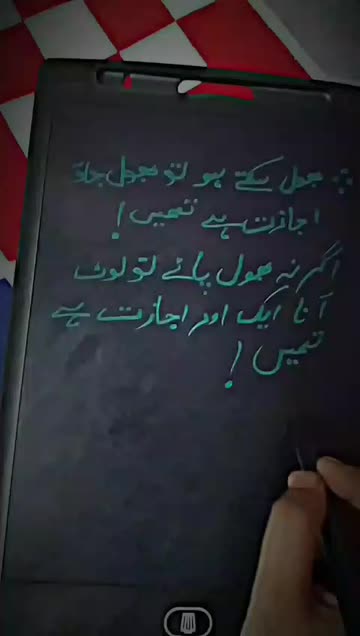 بھول سکتے ہو تو بھول جاؤ
اجازت ہے تمھیں!
اگر نہ بھول پائے تو لوٹ
آنا ایک اور اجازت ہے
تمھیں!